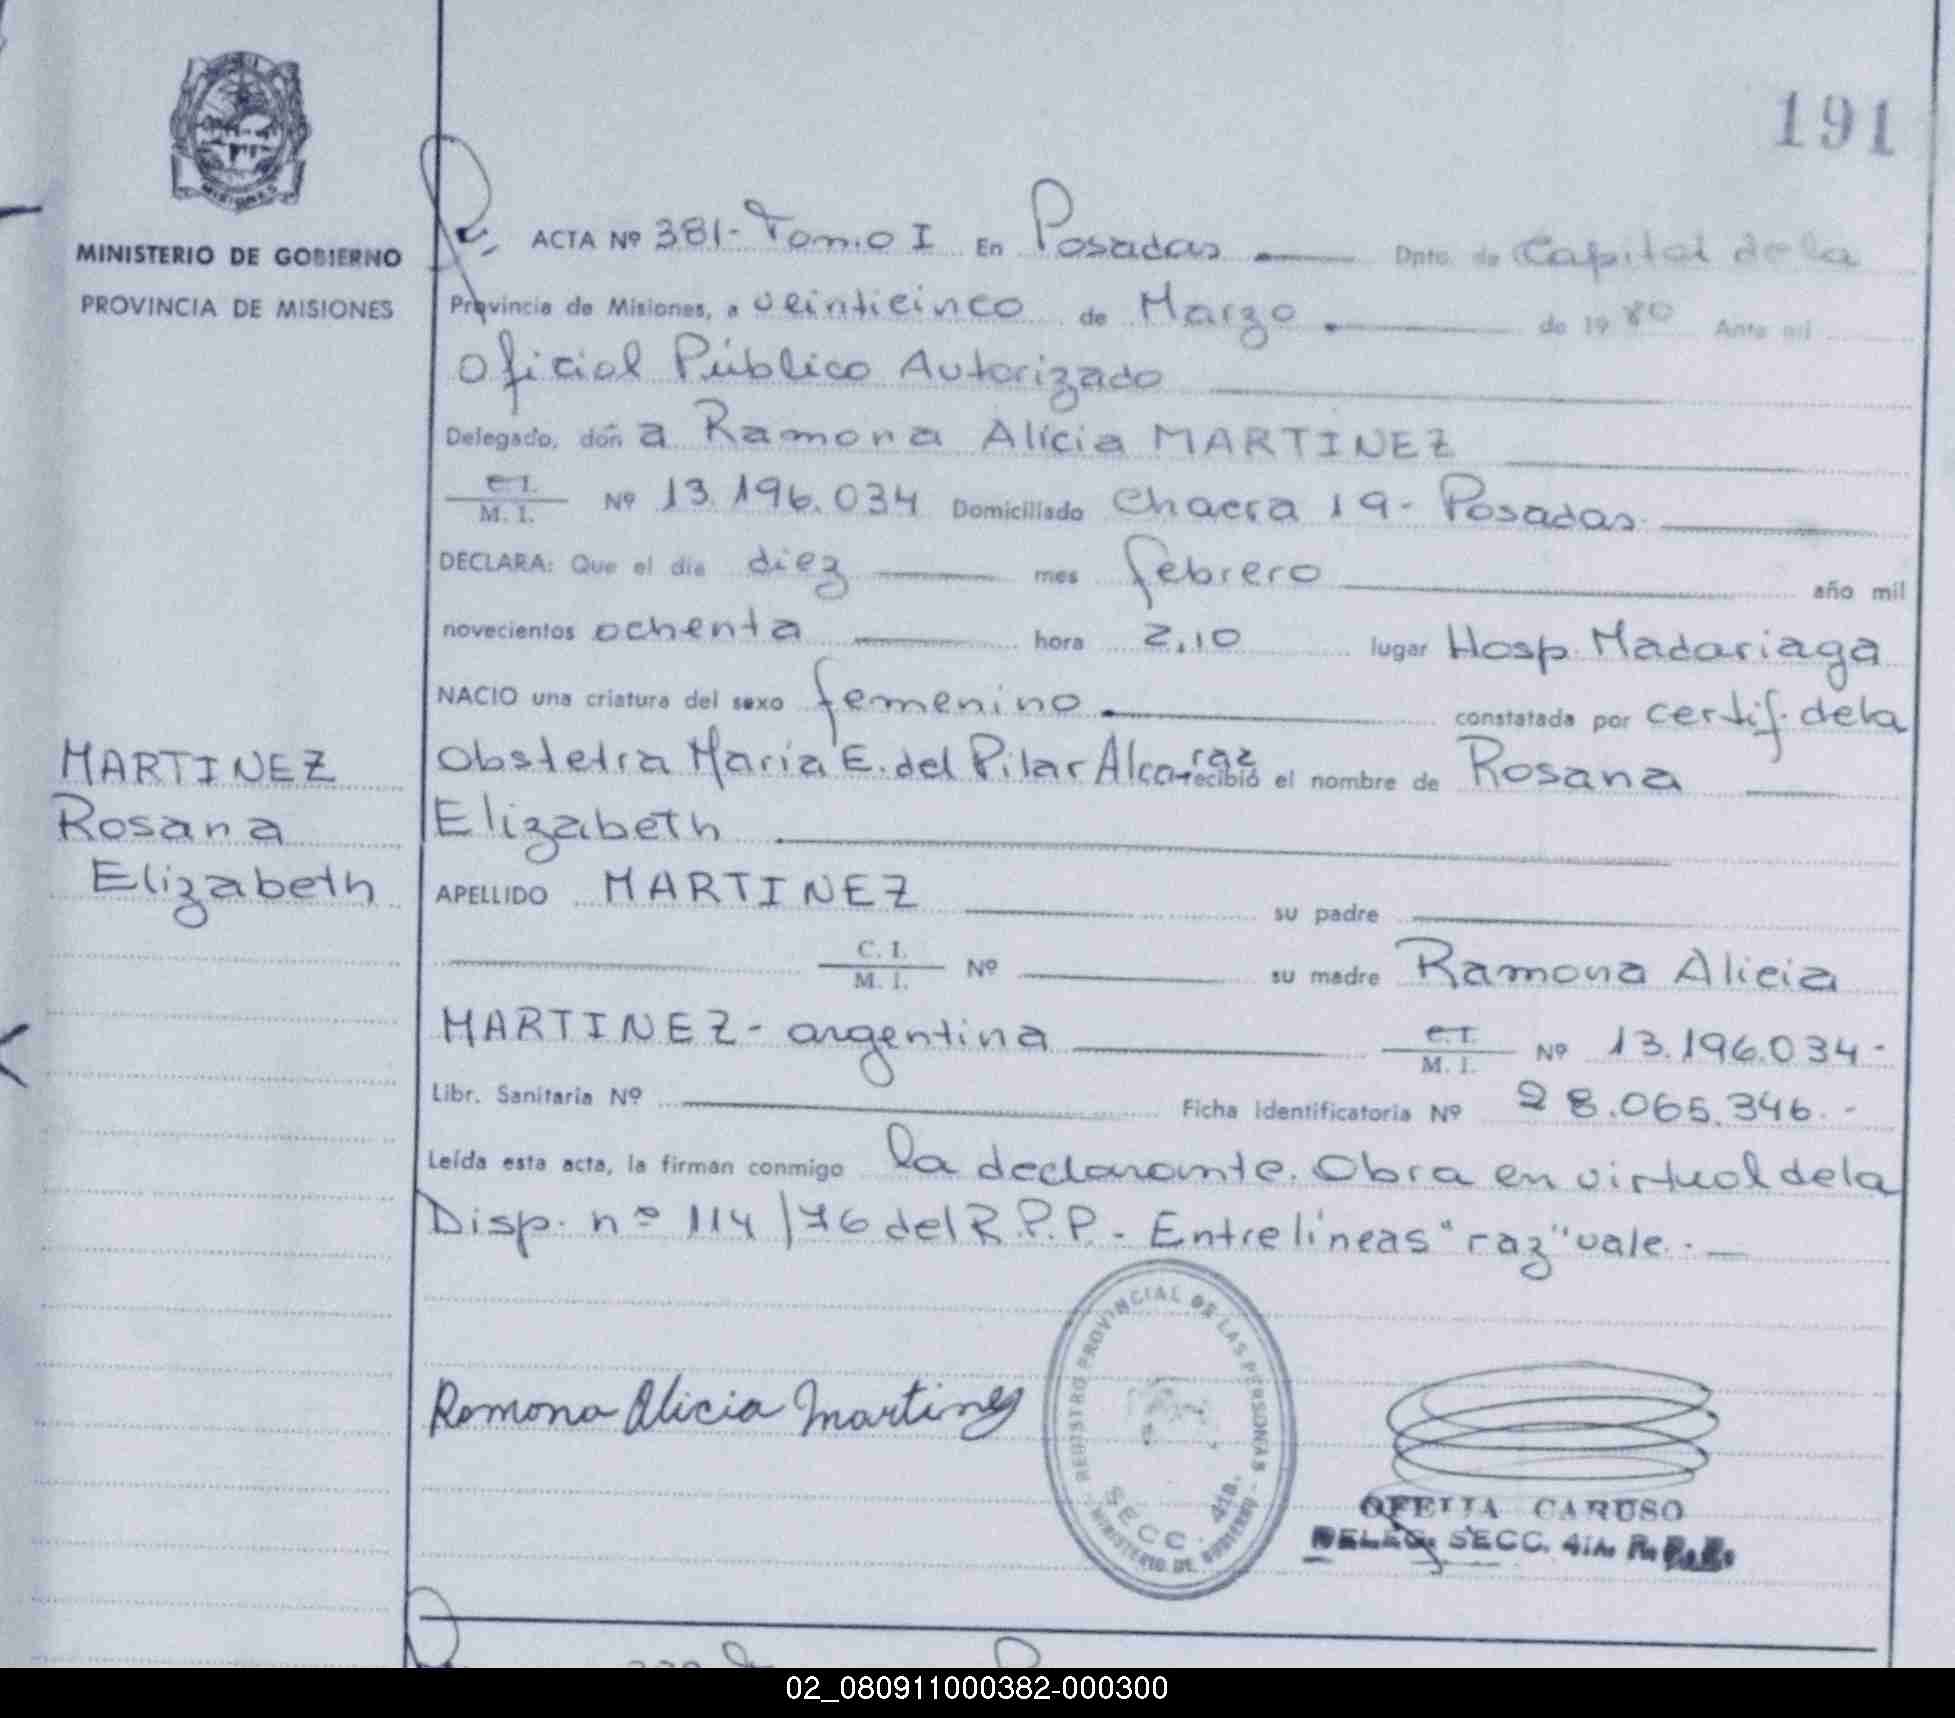 191
MINISTERIO DE GOBIERNO
PROVINCIA DE MISIONES
ACTA Nº 381- Tomo I En Posadas Dpto. de Capital de la
Provincia de Misiones, a veinticinco de Marzo de 1980 Ante mí
Oficial Público Autorizado
Delegado, don a Ramona Alicia MARTINEZ
C.I.
M. I. Nº 13.196.034 Domiciliado Chacra 19- Posadas.
DECLARA: Que el día diez mes febrero año mil
novecientos ochenta hora 2,10 lugar Hosp. Madariaga
NACIO una criatura del sexo femenino constatada por certif. de la
Obstetra María E. del Pilar Alca-raz recibió el nombre de Rosana
Elizabeth
MARTINEZ
Rosana
Elizabeth
APELLIDO MARTINEZ su padre
C. I.
M. I. Nº su madre Ramona Alicia
MARTINEZ - argentina C.I.
M. I. Nº 13.196.034-
Libr. Sanitaria Nº Ficha Identificatoria Nº 28.065.346.-
Leída esta acta, la firman conmigo la declarante. Obra en virtud de la
Disp. nº 114/76 del R.P.P.- Entrelíneas "raz" vale.-
Ramona Alicia Martinez
REGISTRO PROVINCIAL DE LAS PERSONAS
SECC. 4ta.
MINISTERIO DE GOBIERNO
OFELIA CARUSO
DELEG. SECC. 4ta.
02_080911000382-000300